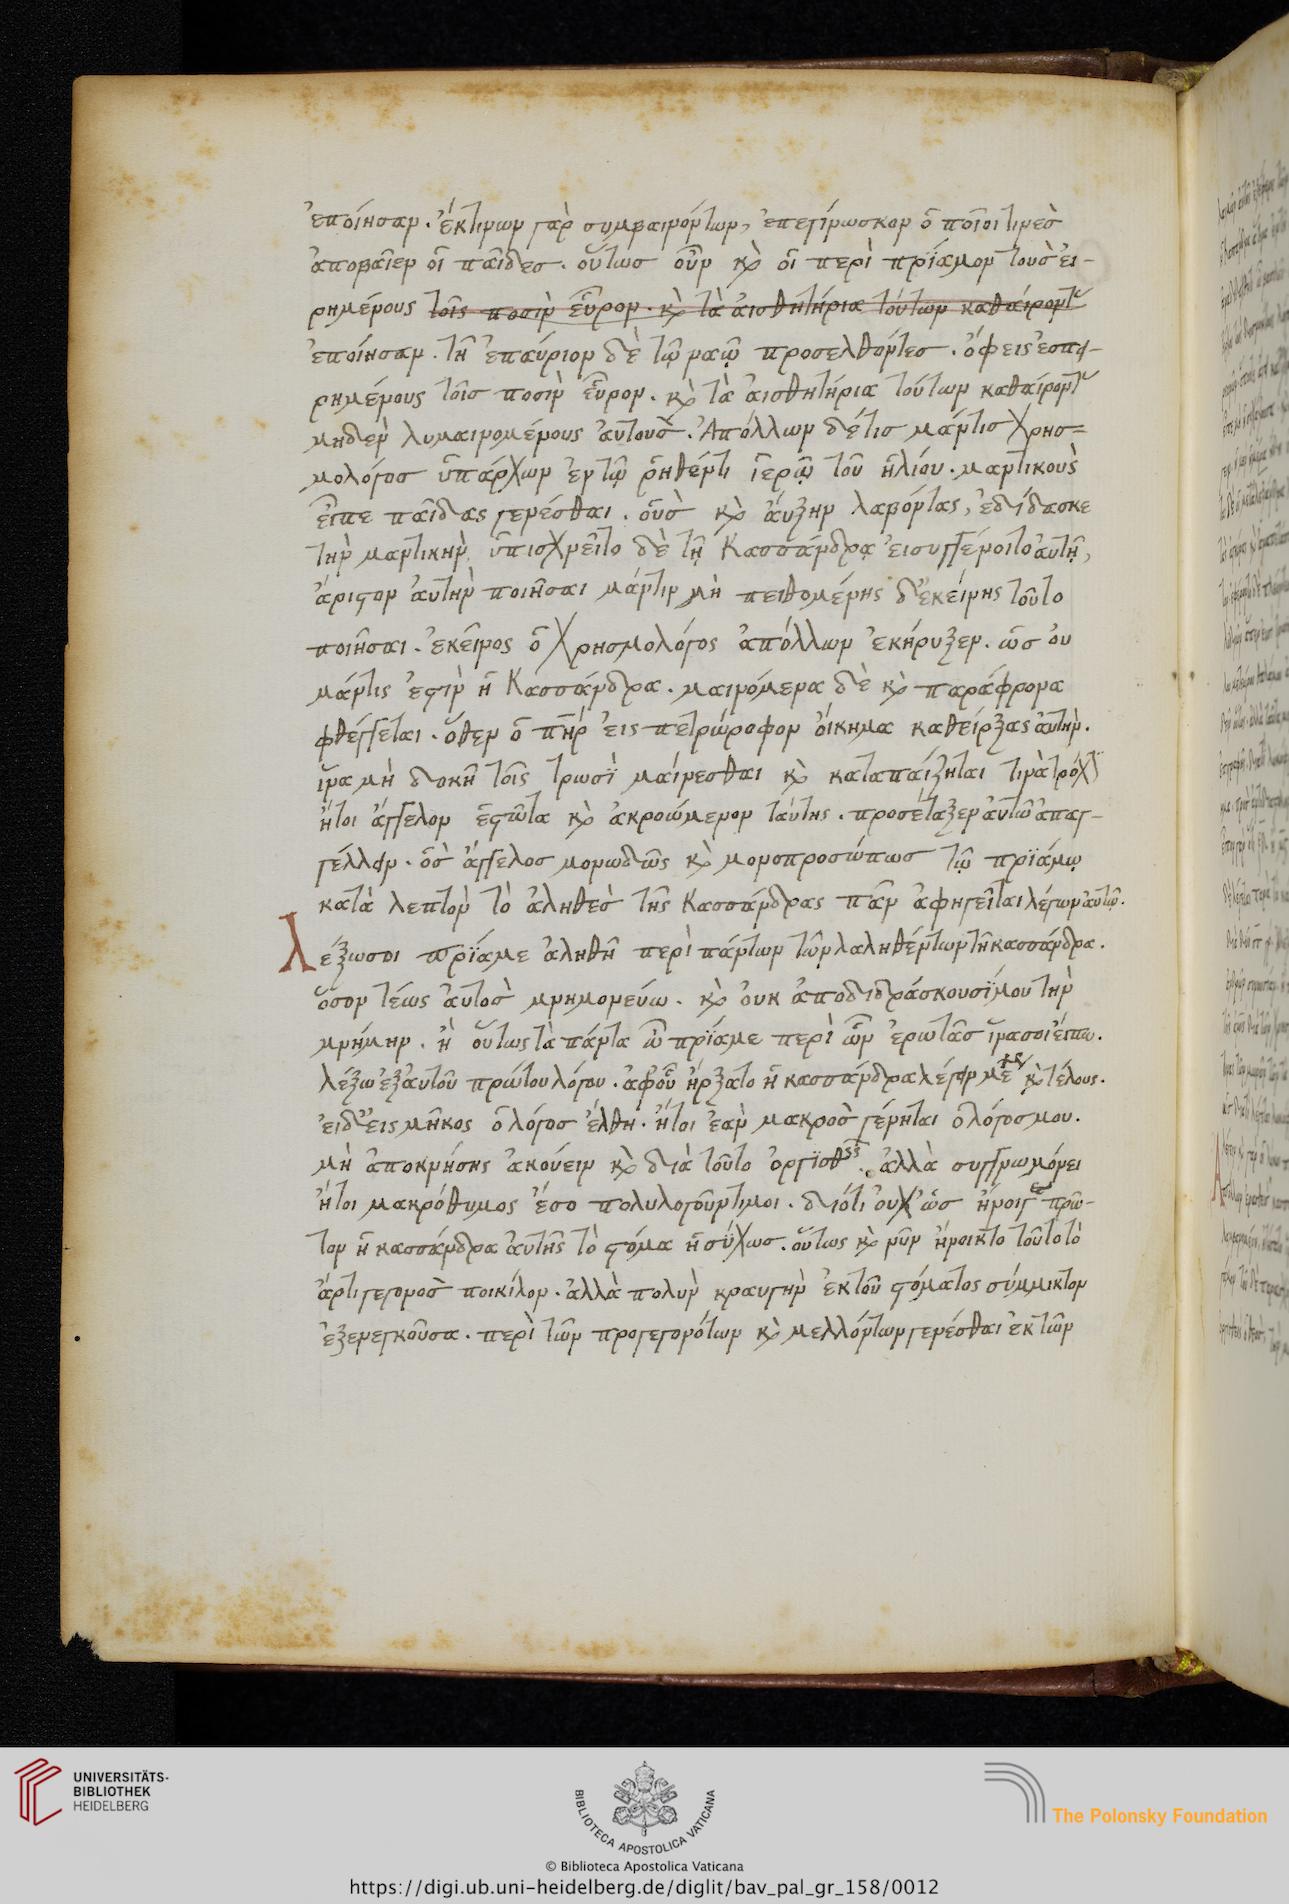 ἐποίησαν. ἔκτινων γὰρ συμβαινόντων, ἐπεγίνωσκον ὁποῖοι τινὲς
ἀποβαῖεν οἱ παῖδες. οὕτως οὖν καὶ οἱ περὶ πρΐαμον τοὺς ἐι-
ρημένους τοῖς ποσὶν εὗρον. καὶ τὰ ἀισθητήρια τούτων καθαίροντ
ἐποίησαν. τῆ ἐπαύριον δὲ τῶ ναῶ προσελθόντες. ὄφεις ἐσπει-
ρημένους τοῖς ποσὶν εὗρον. καὶ τὰ ἀισθητήρια τούτων καθαίροντ
μηδὲν λυμαινομένους ἀυτοὺς. Ἀπόλλων δέτις μάντις χρησ=
μολόγος ὑπάρχων ἐν τῷ ῥηθέντι ἱερῷ τοῦ ἡλίου. μαντικοὺς
εἶπε παῖδας γενέσθαι. οὓς καὶ ἄυξην λαβόντας, ἐδίδασκε
τὴν μαντικὴν ὑπισχνεῖτο δὲ τῇ Κασσάνδρᾳ ἐισυγγένοιτο ἀυτῇ,
ἄριστον ἀυτὴν ποιῆσαι μάντιν μὴ πειθομένης δ'ἐκείνης τοῦτο
ποιῆσαι. ἐκεῖνος ὁ χρησμολόγος ἀπόλλων ἐκήρυξεν. ὡς ὀυ
μάντις ἐστὶν ἡ Κασσάνδρα. μαινόμενα δὲ καὶ παράφρονα
φθέγγεται. ὅθεν ὁ πῆρ ἐις πετρώροφον ὄικημα καθείρξας ἀυτὴν.
ἵνα μὴ δοκῆ τοῖς τρωσὶ μαίνεσθαι καὶ καταπαίζηται τινὰ τρόχ
ἤτοι ἄγγελον ἑστῶτα καὶ ἀκροώμενον ταύτης. προσέταξεν ἀυτῶ ἀπαγ-
γέλλειν. ὃς ἄγγελος μονωδῶς καὶ μονοπροσώπως τῷ πρϊάμῳ
κατὰ λεπτὸν τὸ ἀληθὲς τῆς Κασσάνδρας πᾶν ἀφηγεῖται λέγων ἀυτῷ.
λέξωσοι πρΐαμε ἀληθῆ περὶ πάντων τῶν λαληθέντων τῆ κασσάνδρα.
ὅσον τέως ἀυτὸς μνημονεύω. καὶ ὀυκ ἀποδιδράσκουσίμου τὴν
μνήμην. ἢ οὕτως τὰ πάντα ὦ πρΐαμε περὶ ὧν ἐρωτᾶς ἵνασοι ἔιπω.
λέξω ἐξ ἀυτοῦ πρώτου λόγου. ἀφοῦ ἤρξατο ἡ κασσάνδρα λέγειν μέχρι καὶ τέλους.
ἐιδ' ἐις μῆκος ὁ λόγος ἔλθῃ. ἤτοι ἐὰν μακρὸς γένηται ὁ λόγοσμου.
μὴ ἀποκνήσης ἀκούειν καὶ διὰ τοῦτο ὀργϊσθ. ἀλλὰ συγγνωμόνει
ἤτοι μακρόθυμος ἔσο πολυλογοῦντιμοι. διότι ὀυχ' ὡς ἤνοιγεν πρῶ-
τον ἡ κασσάνδρα ἀυτῆς τὸ στόμα ἡσύχως. οὕτως καὶ νῦν ἤνοικτο τοῦτο τὸ
ἄρτι γεγονὸς ποικίλον. ἀλλὰ πολυὴν κραυγὴν ἐκ τοῦ στόματος σύμμικτον
ἐξενεγκοῦσα. περὶ τῶν προγεγονότων καὶ μελλόντων γενέσθαι ἐκ τῶν
UNIVERSITÄTS-
BIBLIOTHEK
HEIDELBERG
BIBLIOTECA APOSTOLICA VATICANA
The Polonsky Foundation
© Biblioteca Apostolica Vaticana
https://digi.ub.uni-heidelberg.de/diglit/bav_pal_gr_158/0012